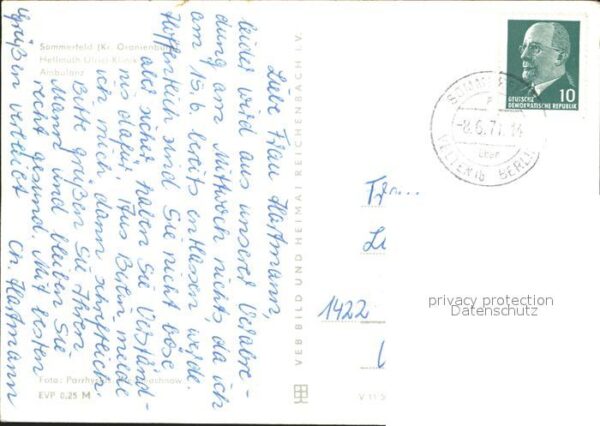 Sommerfeld (Kr. Oranienburg)
Hellmuth Ulrici-Klinik
Ambulanz
Liebe Frau Hartmann,
leider wird aus unserer Verabre-
dung am Mittwoch nichts, da ich
am 15.6. bereits entlassen werde.
Hoffentlich sind Sie nicht böse
aber sicher haben Sie Verständ-
nis dafür. Aus Berlin melde
ich mich dann schriftlich.
Bitte grüßen Sie Ihren
Mann und bleiben Sie
recht gesund. Mit besten
Grüßen verbleibt Ch. Hartmann
Foto:
EVP 0,25 M
VEB BILD UND HEIMAT REICHENBACH I. V.
V 11 5
10
DEUTSCHE
DEMOKRATISCHE REPUBLIK
SOMM
-8.6.71
über
VELTEN b BERLI
1422
privacy protection
Datenschutz